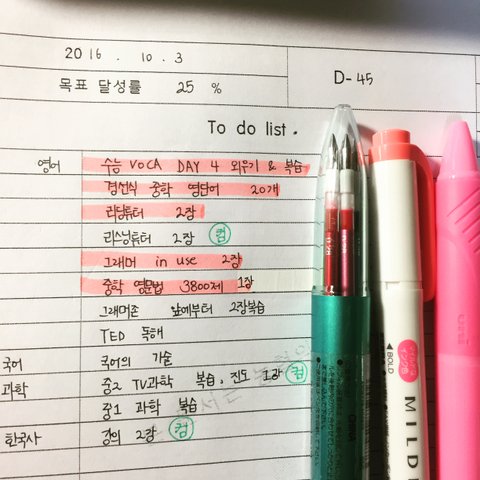 2016 . 10 . 3
목표 달성률 25 %
D-45
To do list .
영어 수능 VOCA DAY 4 외우기 & 복습
경선식 중학 영단어 20개
리딩튜터 2장
리스닝튜터 2장 컴
그래머 in use 2장
중학 영문법 3800제 1장
그래머존 앞에부터 2장복습
TED 독해
국어 국어의 기술
과학 중2 TV과학 복습, 진도 1강 컴
중1 과학 복습
한국사 강의 2강 컴
0.28
BOLD
MILD